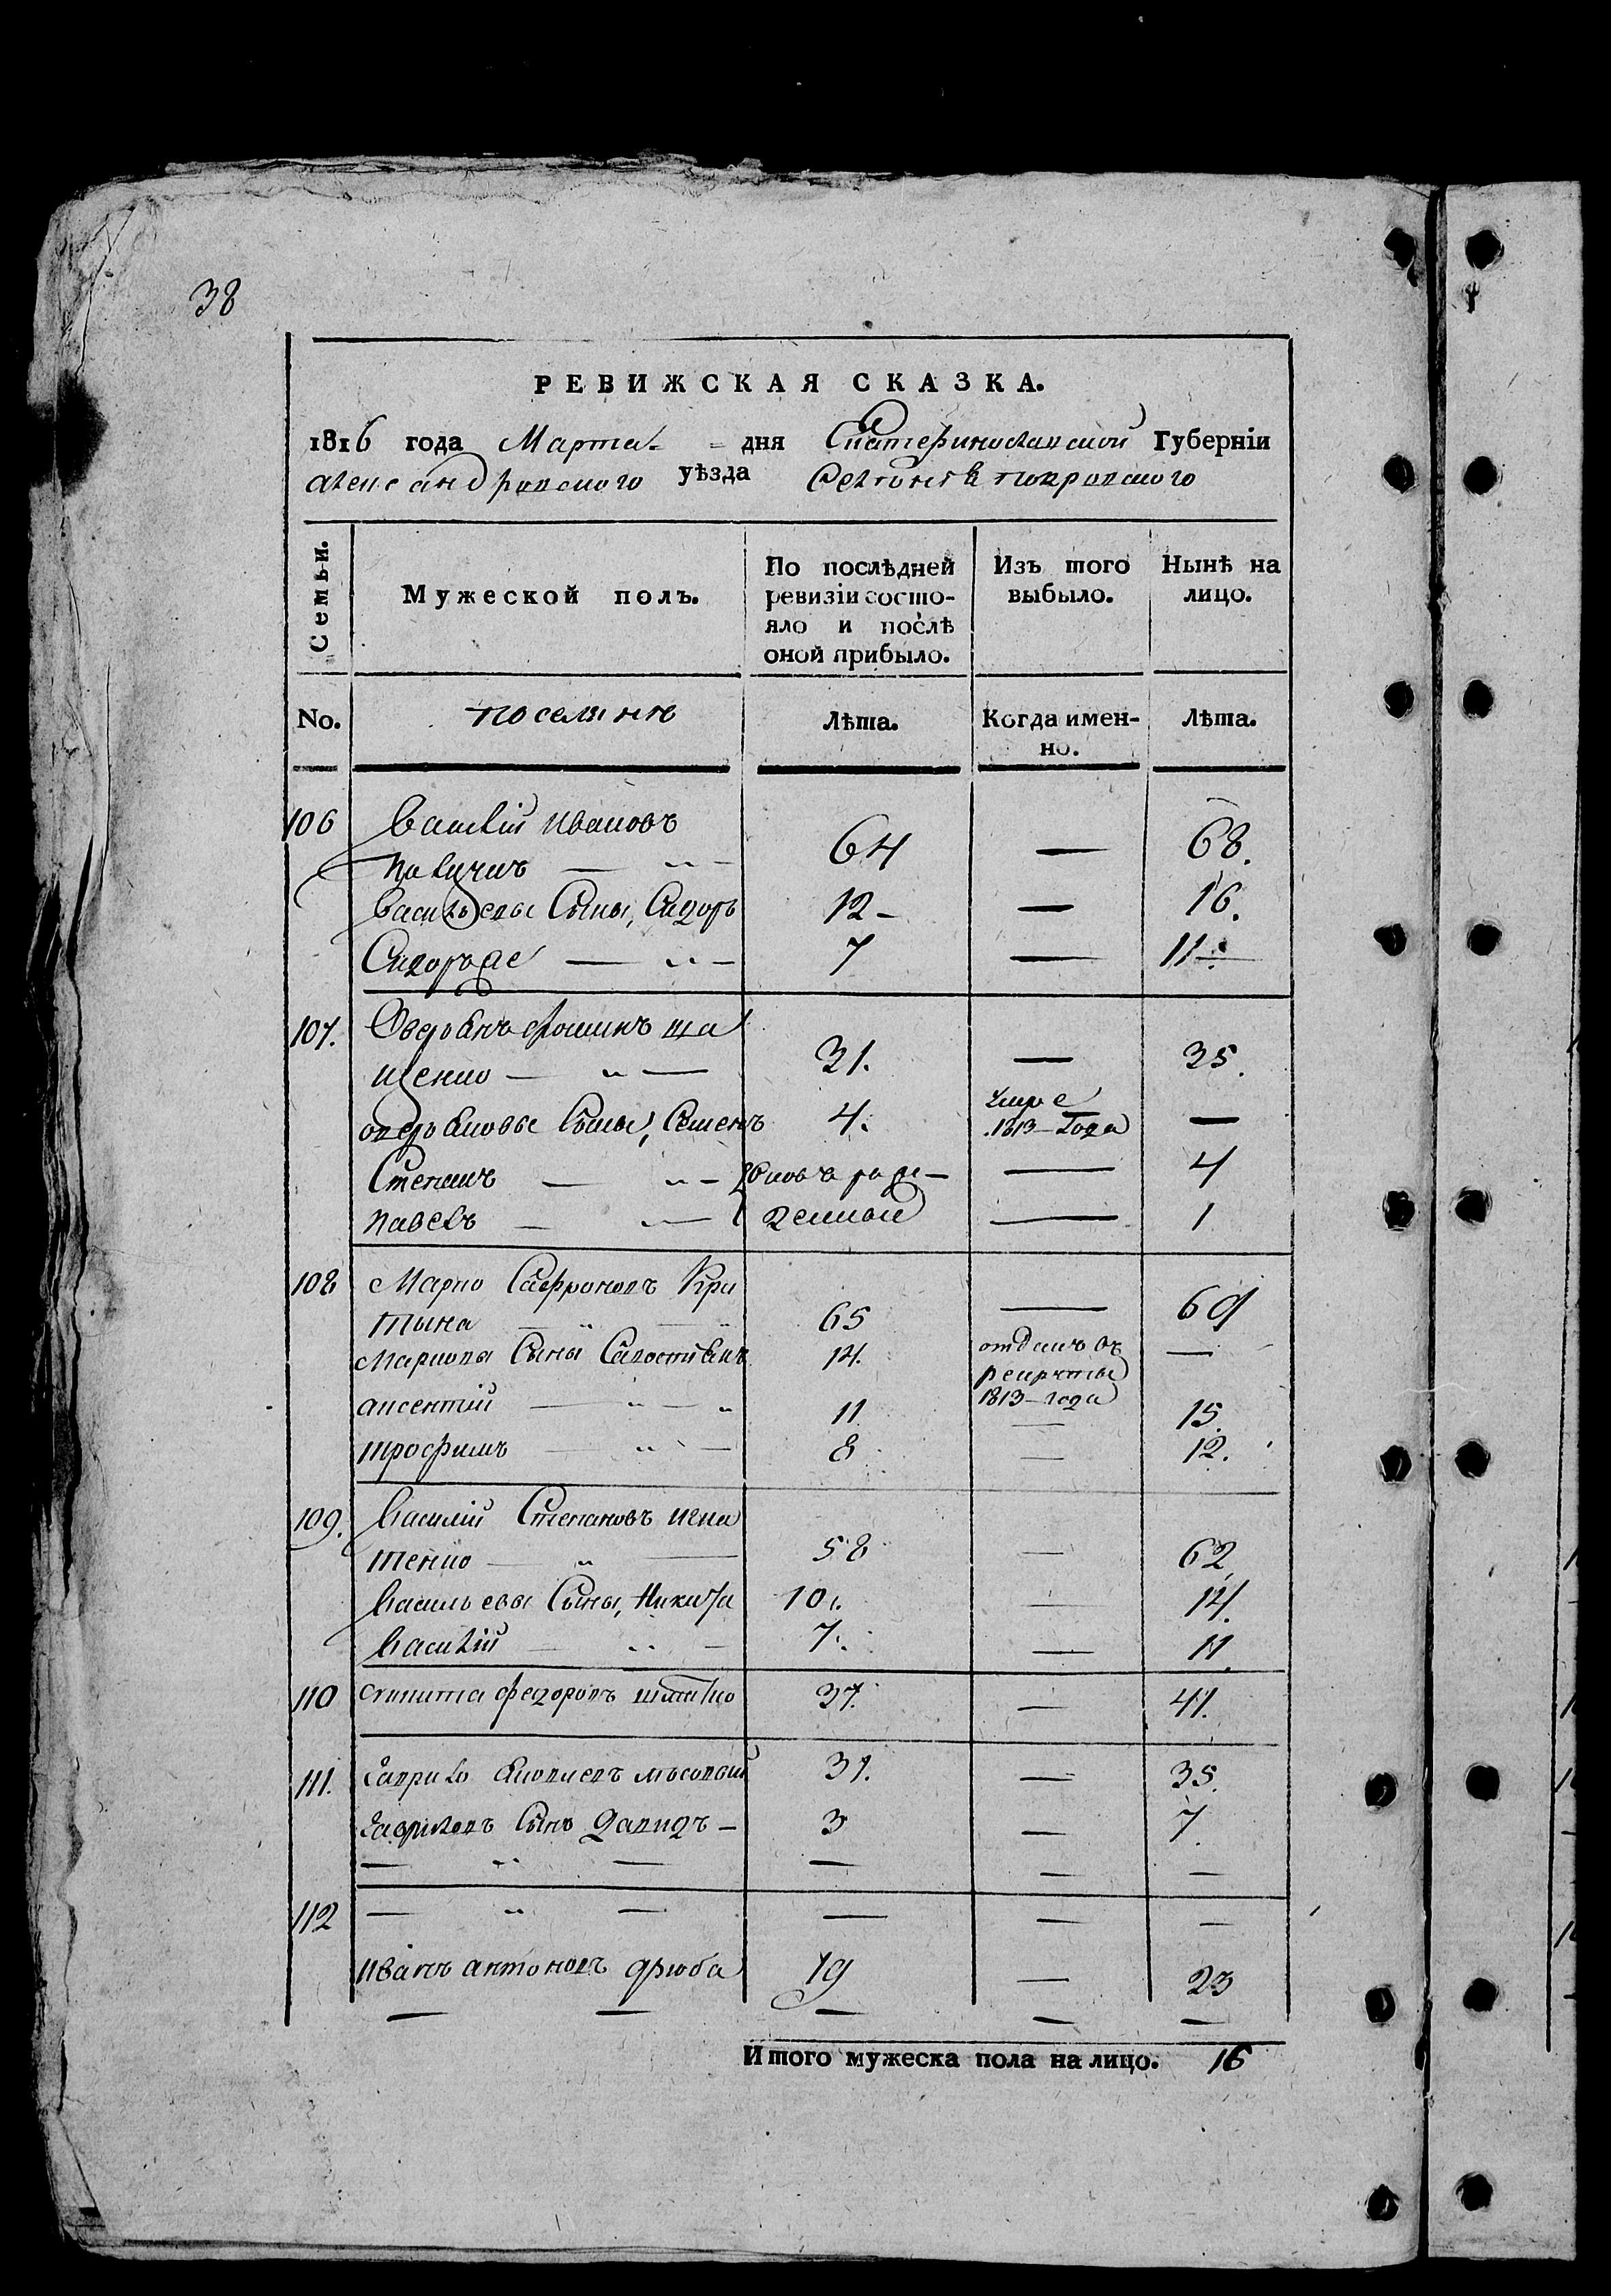 38
РЕВИЖСКАЯ СКАЗКА.
1816 года Марта дня Екатеринославской Губерніи
александровского уѣзда Селенія покровского
Семьи. Мужеской полъ. По послѣдней ревизіи состояло и послѣ оной прибыло. Изъ того выбыло. Нынѣ на лицо.
No. поселянъ Лѣта. Когда именно. Лѣта.
106 Василій Ивановъ
64 — 68.
Васильевы Сыны, Сидоръ 12 — 16.
Сидоръ же 7 — 11
107. Аверьянъ
31. — 35.
аверьяновы Сыны, Семенъ 4. умре 1813 Года —
Степанъ вновь рож — 4
Павелъ денныи — 1
108 Марко Сафроновъ Кри
тына 65 — 69
Марковы Сыны Савостьянъ 14. отданъ въ рекруты 1813 года —
аксентій 11 — 15.
трофимъ 8 — 12.
109. Василій Степановъ игна
тенко 58 — 62
Васильевы Сыны, Никита 10. — 14.
Василій 7. — 11.
110 никита федоровъ 37. — 41.
111. Гаврило Яковлевъ лѣсовый 31. — 35.
Гавриловъ Сынъ Давидъ — 3 — 7.
— — — — —
112 — — — — —
Иванъ антоновъ дзюба 19 — 23
— — — — —
Итого мужеска пола на лицо. 16